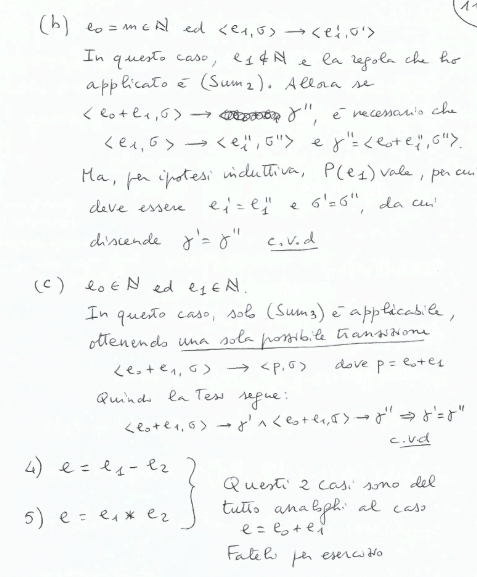 11
(b) e₀ = m ∈ ℕ ed <e₁, σ> → <e₁', σ'>
In questo caso, e₁ ∉ ℕ e la regola che ho
applicato è (Sum₂). Allora se
<e₀ + e₁, σ> → γ'', è necessario che
<e₁, σ> → <e₁'', σ''> e γ'' = <e₀ + e₁'', σ''>.
Ma, per ipotesi induttiva, P(e₁) vale, per cui
deve essere e₁' = e₁'' e σ' = σ'', da cui
discende γ' = γ'' c.v.d
(c) e₀ ∈ ℕ ed e₁ ∈ ℕ.
In questo caso, solo (Sum₃) è applicabile,
ottenendo una sola possibile transizione
<e₀ + e₁, σ> → <p, σ> dove p = e₀ + e₁
Quindi la Tesi segue:
<e₀ + e₁, σ> → γ' ∧ <e₀ + e₁, σ> → γ'' ⇒ γ' = γ''
c.v.d
4) e = e₁ - e₂
5) e = e₁ * e₂
Questi 2 casi sono del
tutto analoghi al caso
e = e₀ + e₁
Fatelo per esercizio